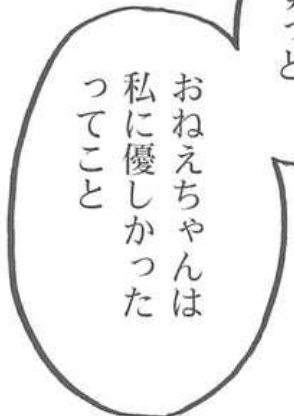 おねえちゃんは
私に優しかった
ってこと